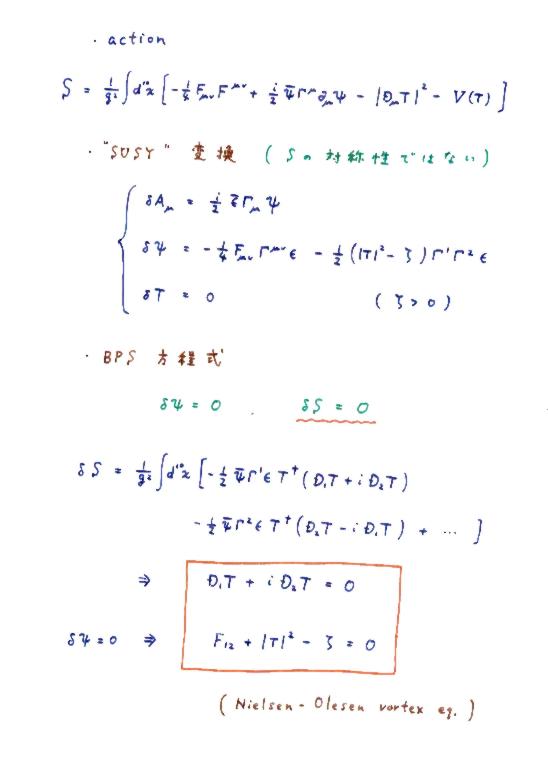 · action
S = 1/g² ∫d¹⁰x [ -1/4 F_μν F^μν + i/2 Ψ̄Γ^μ∂_μΨ - |D_μT|² - V(T) ]
· "SUSY" 変換 ( Sの対称性ではない )
δA_μ = i/2 ε̄Γ_μΨ
δΨ = -1/4 F_μν Γ^μν ε - 1/2 (|T|² - ζ) Γ¹Γ² ε
δT = 0 ( ζ > 0 )
· BPS 方程式
δΨ = 0 . δS = 0
δS = 1/g² ∫d¹⁰x [ -1/2 Ψ̄Γ¹ε T† (D₁T + i D₂T)
-1/2 Ψ̄Γ²ε T† (D₂T - i D₁T) + ⋯ ]
⇒ D₁T + i D₂T = 0
δΨ = 0 ⇒ F₁₂ + |T|² - ζ = 0
( Nielsen - Olesen vortex eq. )